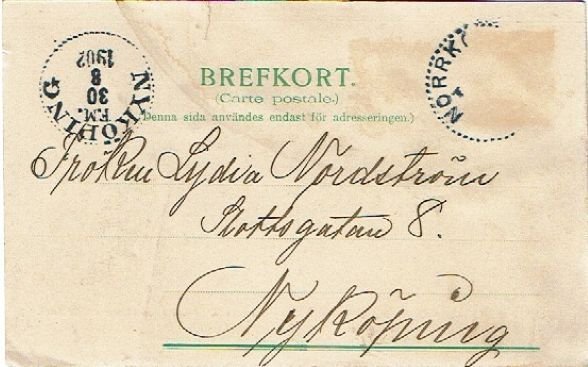 NYKÖPING
30 F.M.
8
1902
NORRK
BREFKORT.
(Carte postale.)
(Denna sida användes endast för adresseringen.)
Fröken Lydia Nordström
Slottsgatan 8.
Nyköping